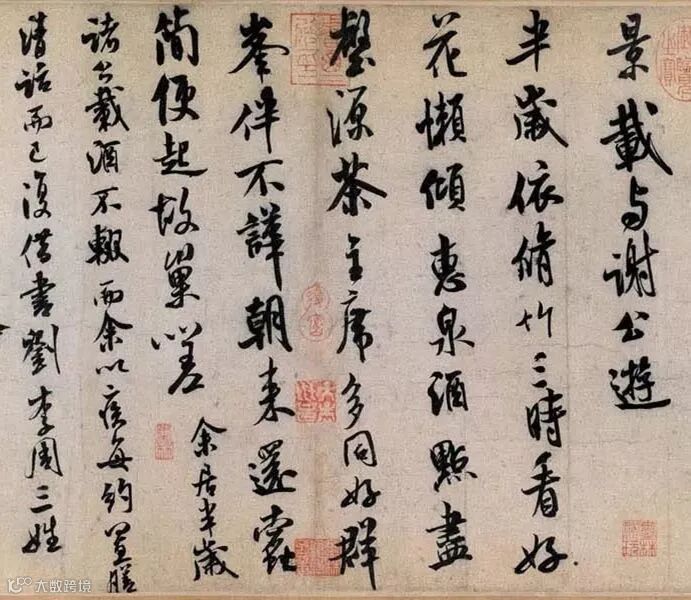 景載与謝公遊
半歲依脩竹三時看好
花懶傾惠泉酒點盡
壑源茶主席多同好群
峯伴不譁朝来還蠹
簡便起故巢嗟 余居半歲
諸公載酒不輟而余以疾每約置膳
清話而已復借書劉李周三姓
大数跨境